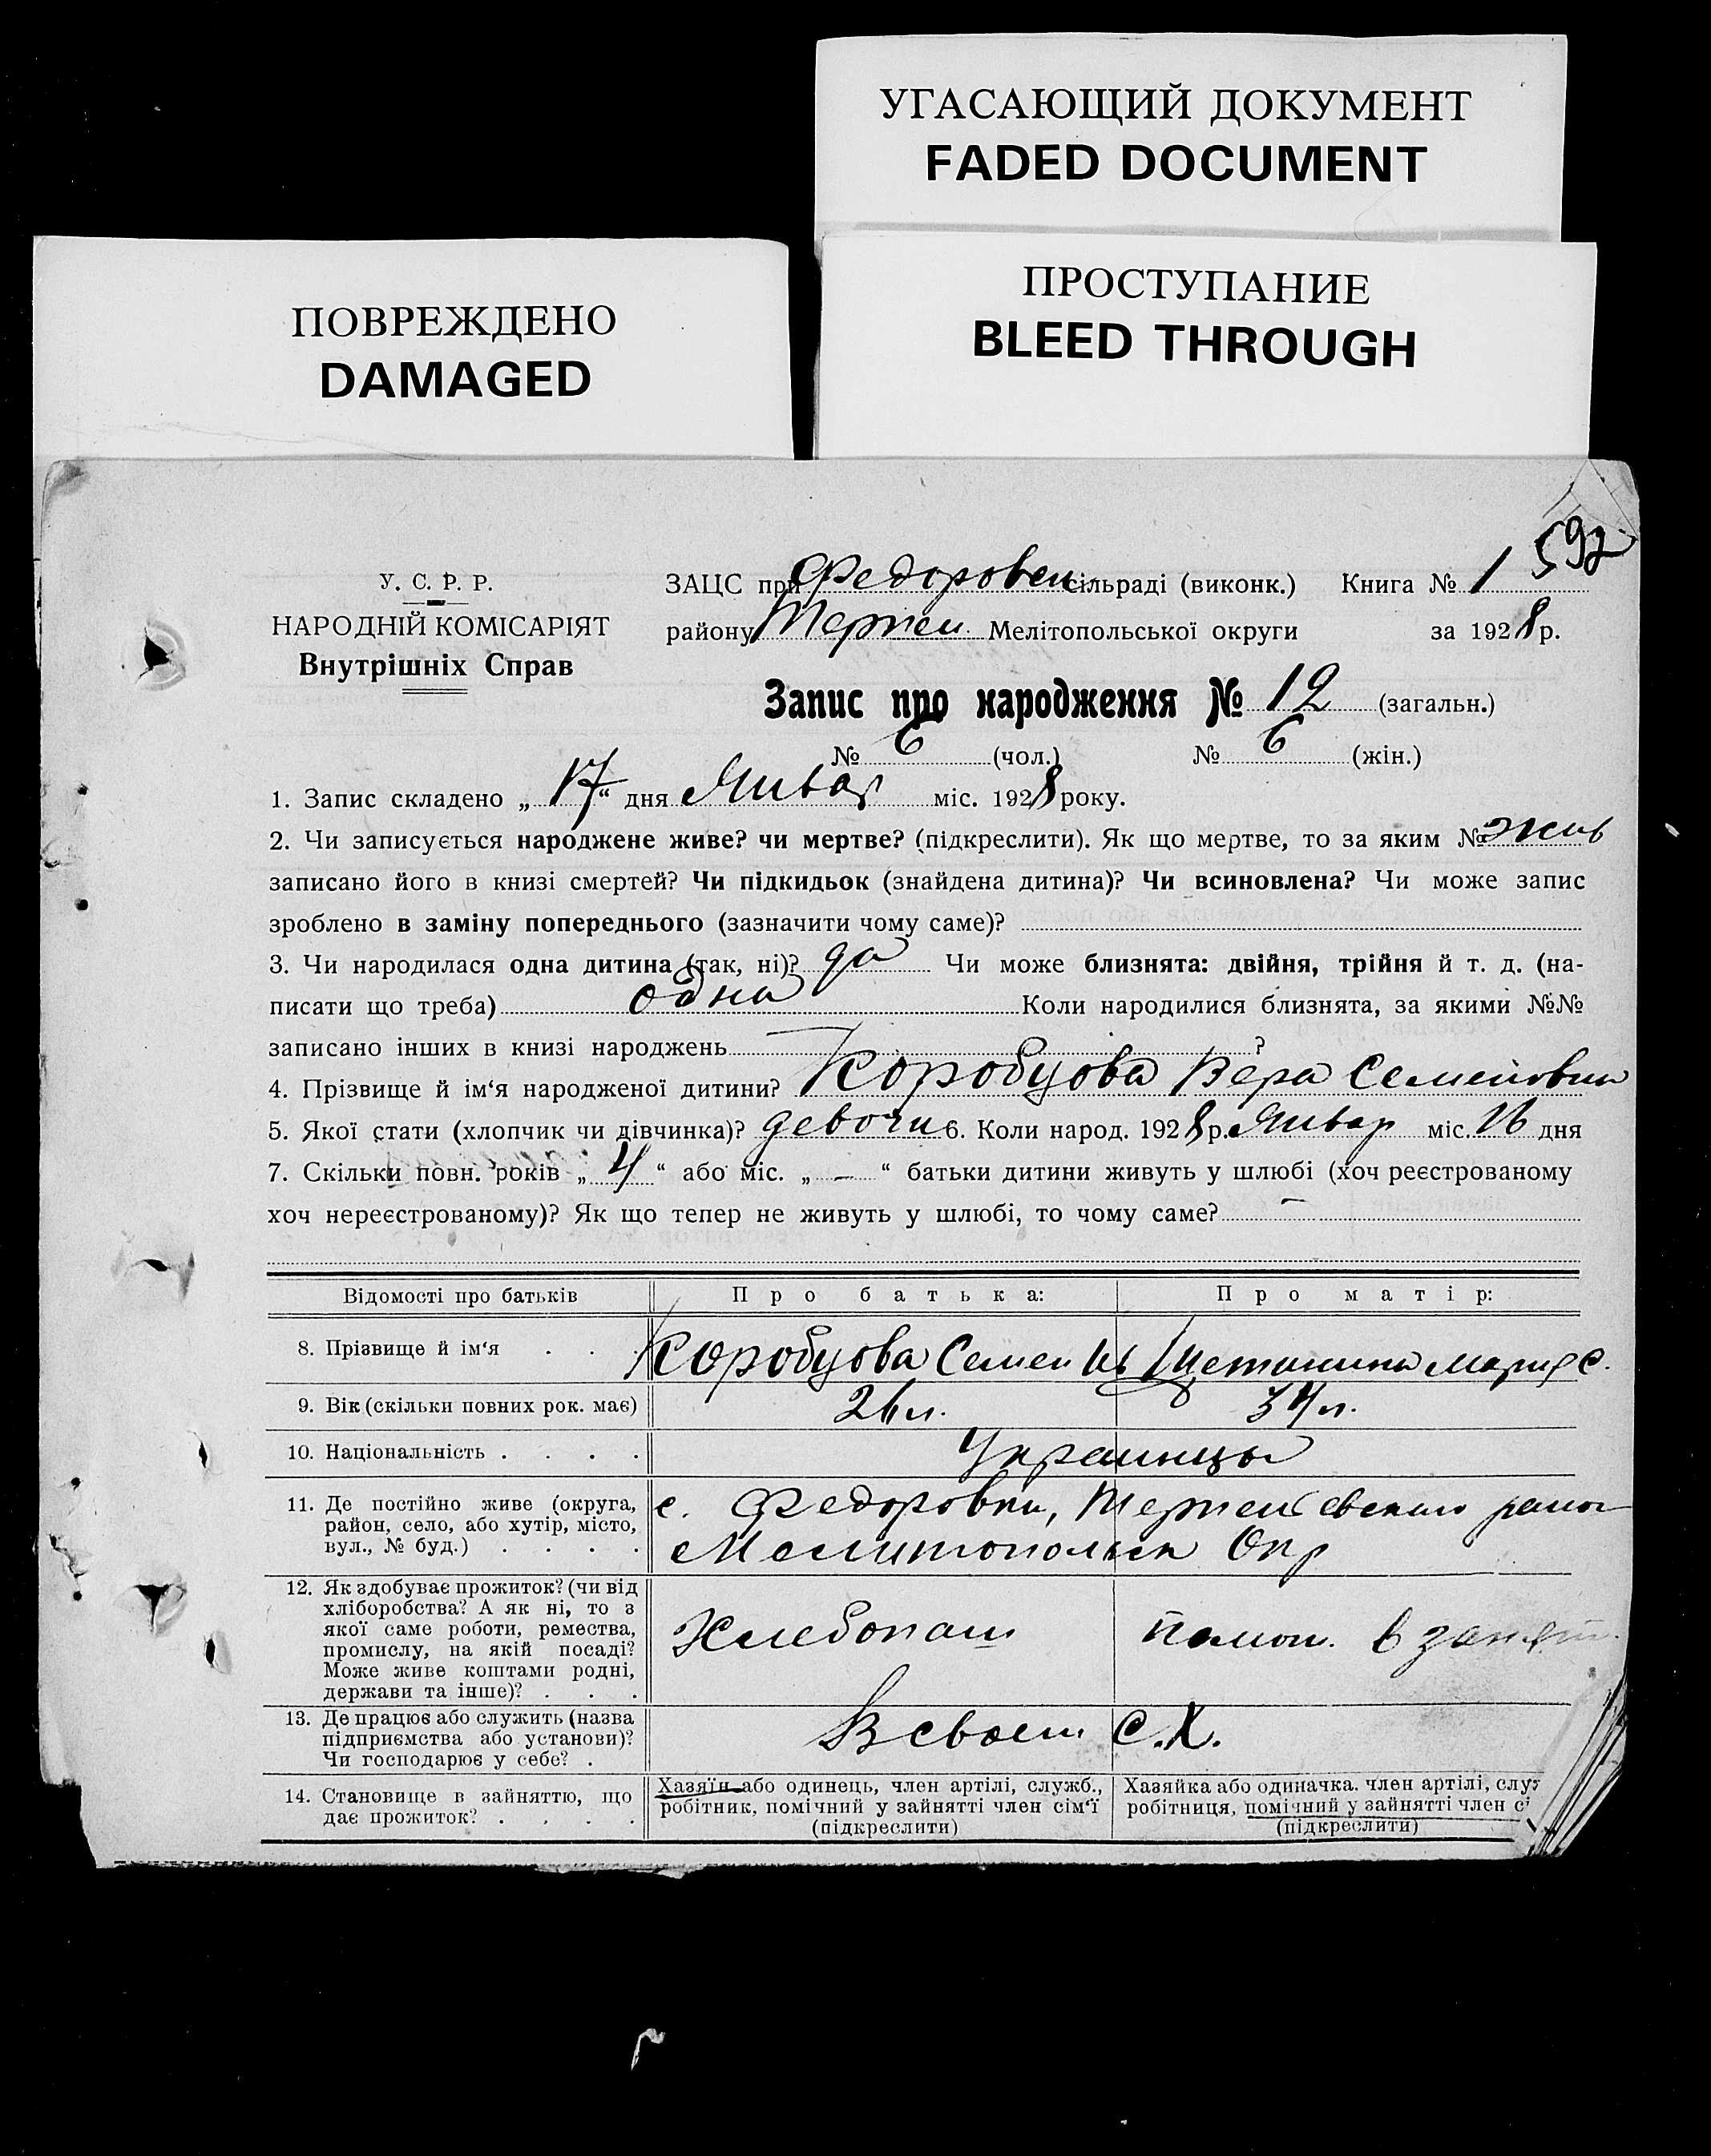 УГАСАЮЩИЙ ДОКУМЕНТ
FADED DOCUMENT
ПРОСТУПАНИЕ
BLEED THROUGH
ПОВРЕЖДЕНО
DAMAGED
592
У. С. Р. Р.
НАРОДНІЙ КОМІСАРІЯТ
Внутрішніх Справ
ЗАЦС при Федоровск сільраді (виконк.) Книга № 1
району Терпен. Мелітопольської округи за 1928 р.
Запис про народження № 12 (загальн.)
№ 6 (чол.) № 6 (жін.)
1. Запис складено „17“ дня Январ міс. 1928 року.
2. Чи записується народжене живе? чи мертве? (підкреслити). Як що мертве, то за яким № жив
записано його в книзі смертей? Чи підкидьок (знайдена дитина)? Чи всиновлена? Чи може запис
зроблено в заміну попереднього (зазначити чому саме)?
3. Чи народилася одна дитина (так, ні)? да Чи може близнята: двійня, трійня й т. д. (на-
писати що треба) одна Коли народилися близнята, за якими №№
записано інших в книзі народжень ?
4. Прізвище й ім‘я народженої дитини? Коробцова Вера Семеновна
5. Якої стати (хлопчик чи дівчинка)? девочк 6. Коли народ. 1928 р. Январ міс. 16 дня
7. Скільки повн. років „4“ або міс. „—“ батьки дитини живуть у шлюбі (хоч реєстрованому
хоч нереєстрованому)? Як що тепер не живуть у шлюбі, то чому саме? —
Відомості про батьків Про батька: Про матір:
8. Прізвище й ім‘я . . . Коробцова Семен Ив Щетинина Мария С.
9. Вік (скільки повних рок. має) 26 л. 34 л.
10. Національність . . . . Украинцы
11. Де постійно живе (округа,
район, село, або хутір, місто,
вул., № буд.) . . . .
с. Федоровки, Терпеньевского район
Мелитопольск Окр
12. Як здобуває прожиток? (чи від
хліборобства? А як ні, то з
якої саме роботи, ремества,
промислу, на якій посаді?
Може живе коштами родні,
держави та інше)? . . .
Хлебопаш помощ. в занят.
13. Де працює або служить (назва
підприємства або установи)?
Чи господарює у себе? .
В своем С.Х.
14. Становище в зайняттю, що
дає прожиток? . . . .
Хазяїн або одинець, член артілі, служб.,
робітник, помічний у зайнятті член сім‘ї
(підкреслити)
Хазяйка або одиначка. член артілі, служ
робітниця, помічний у зайнятті член сі
(підкреслити)